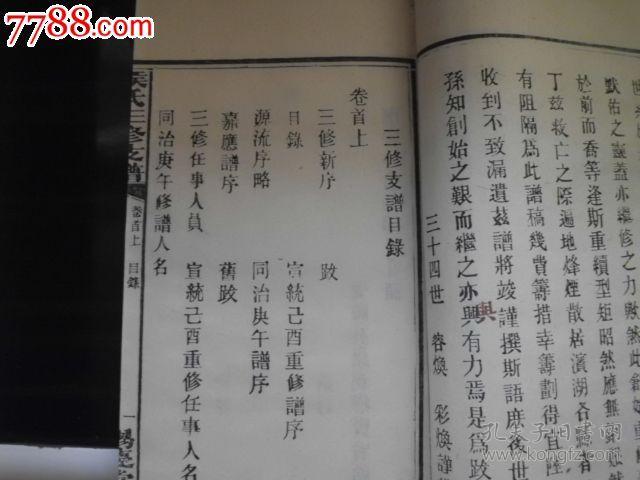 7788.com
默佑之靈蓋亦繼修之力歟然此
於前而喬等逢斯重續型矩昭然應無
丁茲救亡之際遍地烽煙散居濱湖各縣者
有阻隔爲此譜稿幾費籌措幸籌劃得宜隆
收到不致漏遺茲譜將竣謹撰斯語庶後世
孫知創始之艱而繼之亦興有力焉是爲跋
與
三十四世 容煥 彩煥謹
三修支譜目錄
卷首上
三修新序 跋
目錄 宣統己酉重修譜序
源流序略 同治庚午譜序
嘉應譜序 舊跋
三修任事人員 宣統己酉重修任事人名
同治庚午修譜人名
氏三修支譜 卷首上 目錄 一
孔夫子舊書網
www.kongfz.com